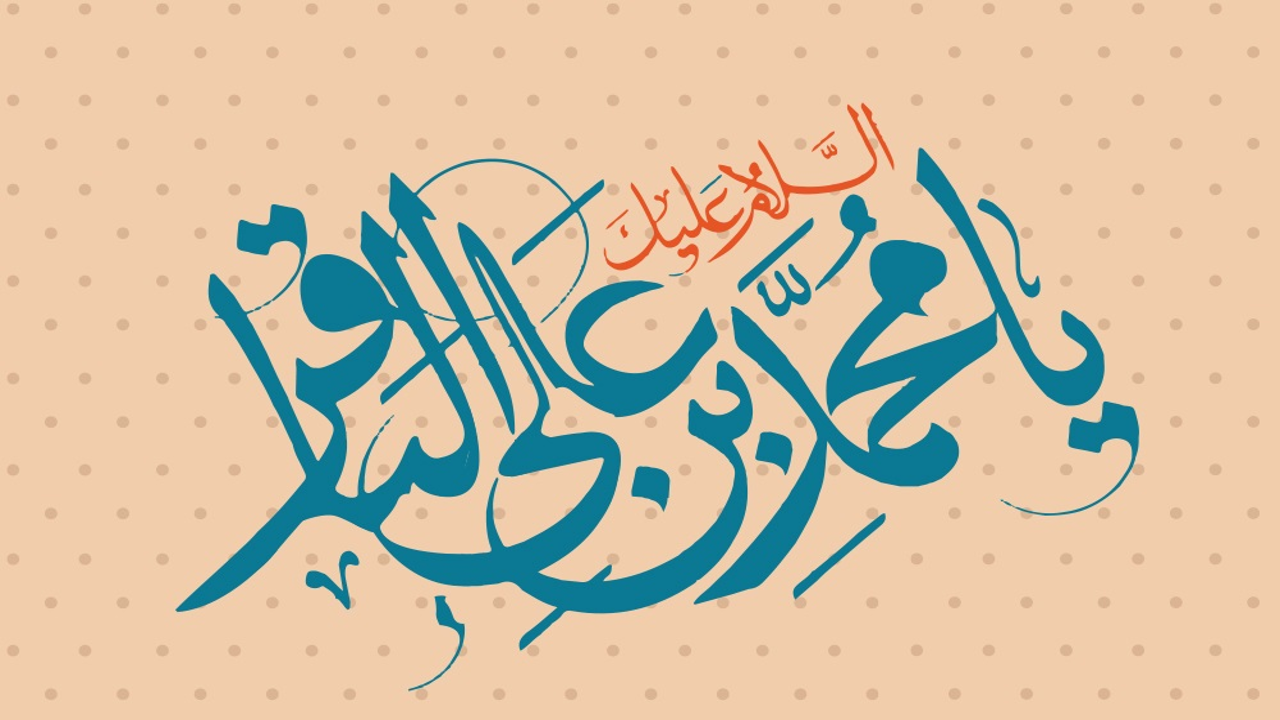 السَّلامُ عَلَيكَ
يا محمَّدُ ابنِ عَلیٍ الباقر